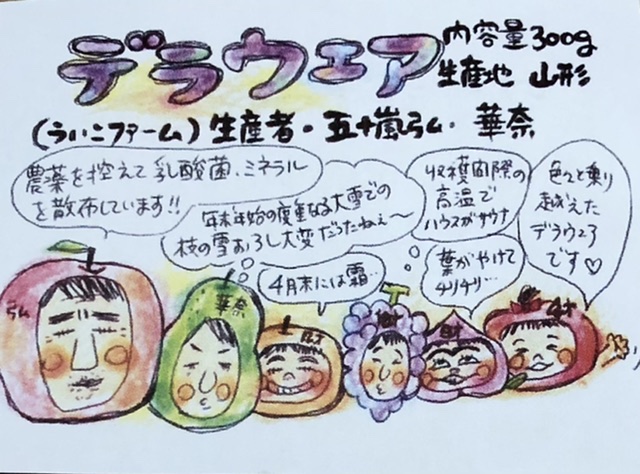 デラウェア
内容量300g
生産地 山形
(ういこファーム)生産者・五十嵐ラム・華奈
農薬を控えて乳酸菌、ミネラル
を散布しています!!
年末年始の度重なる大雪での
枝の雪おろし大変だったねぇ〜
4月末には霜…
収穫間際の
高温で
ハウスがサウナ
葉がやけて
チリチリ…
色々と乗り
越えた
デラウェア
です♡
ラム
華奈
8才
4才